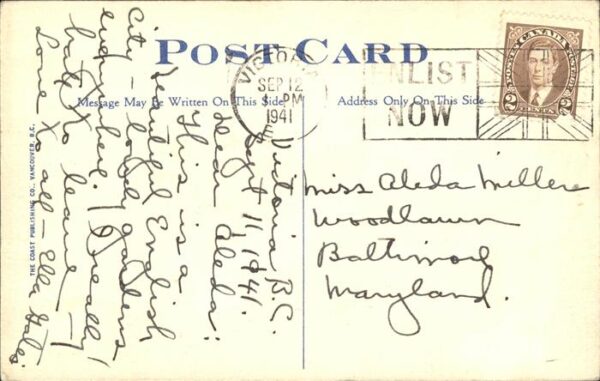 POST CARD
Message May Be Written On This Side
Address Only On This Side
SEP 12
PM
1941
ENLIST
NOW
POSTES CANADA POSTAGE
2 2
THE COAST PUBLISHING CO., VANCOUVER, B.C.
Victoria B.C.
Sept 11, 1941.
Dear Aleda:
This is a
beautiful English
City - lovely gardens
everywhere. I really
hate to leave -
Love to all - Ella
Miss Aleda Millere
Woodlawn
Baltimore
Maryland.